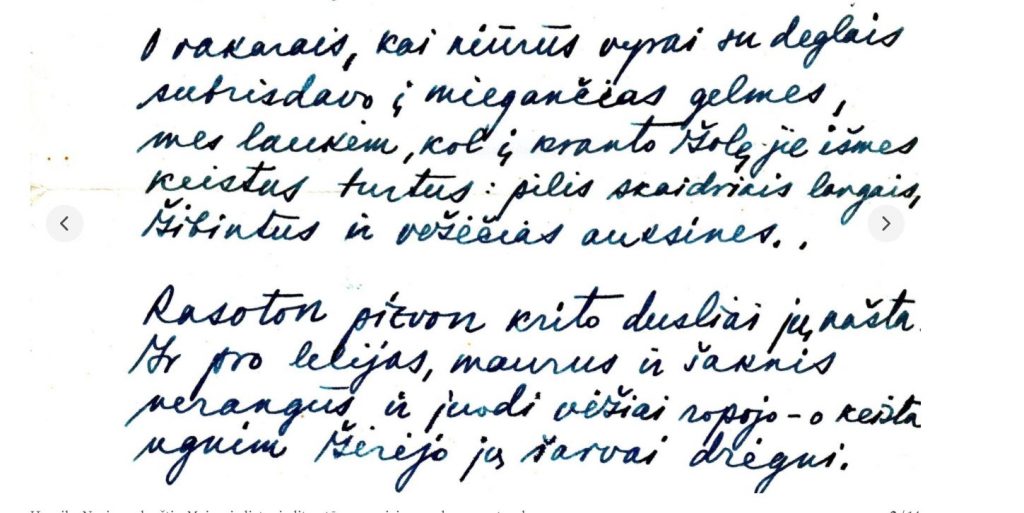 O vakarais, kai niūrūs vyrai su deglais
subrisdavo į miegančias gelmes,
mes laukėm, kol į kranto žolę jie išmes
keistus turtus: pilis skaidriais langais,
žibintus ir vėžėčias auksines..
Rasoton pievon krito dusliai jų našta.
Ir pro lelijas, maurus ir šaknis
nerangūs ir juodi vėžiai ropojo – o keista
ugnim žėrėjo jų šarvai drėgni.